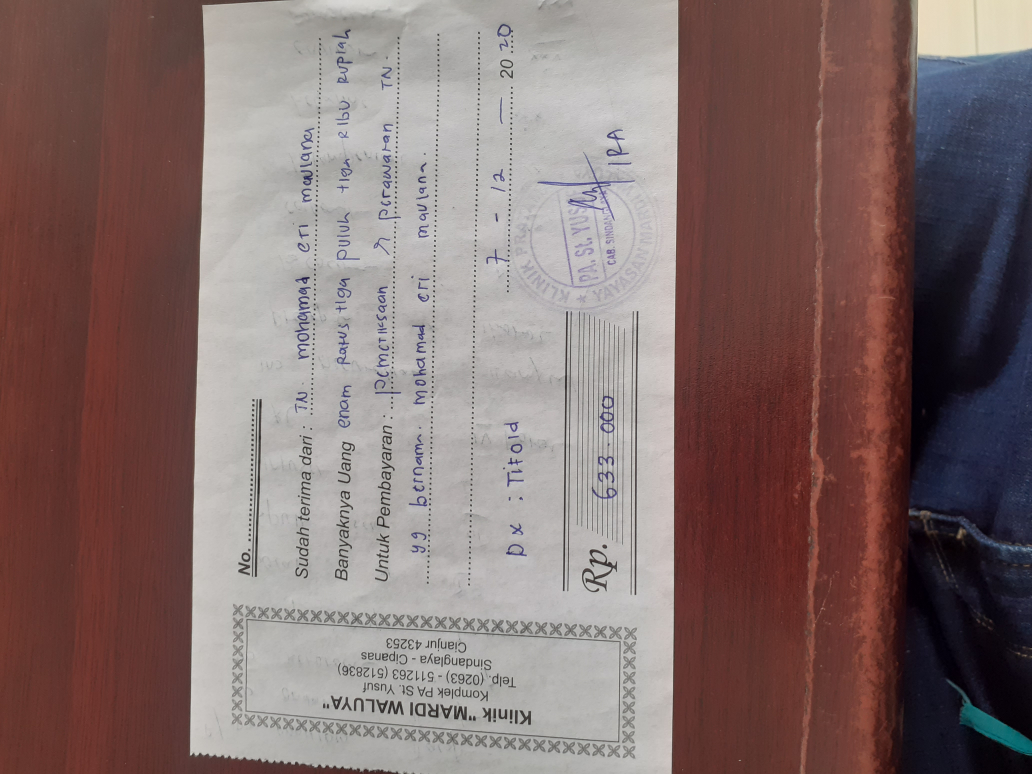 Klinik "MARDI WALUYA"
Komplek PA St. Yusuf
Telp. (0263) - 511263 (512836)
Sindanglaya - Cipanas
Cianjur 43253
No.
Sudah terima dari : TN. mohamad eri maulana
Banyaknya Uang enam Ratus tiga puluh tiga Ribu Rupiah
Untuk Pembayaran : pemeriksaan & perawatan TN.
yg bernama mohamad eri maulana.
7 - 12 - 20 20
Dx : Tifoid
Rp. 633.000
KLINIK
PA. St. YUSUF
CAB. SINDANGLAYA
YAYASAN MARDI
IRA